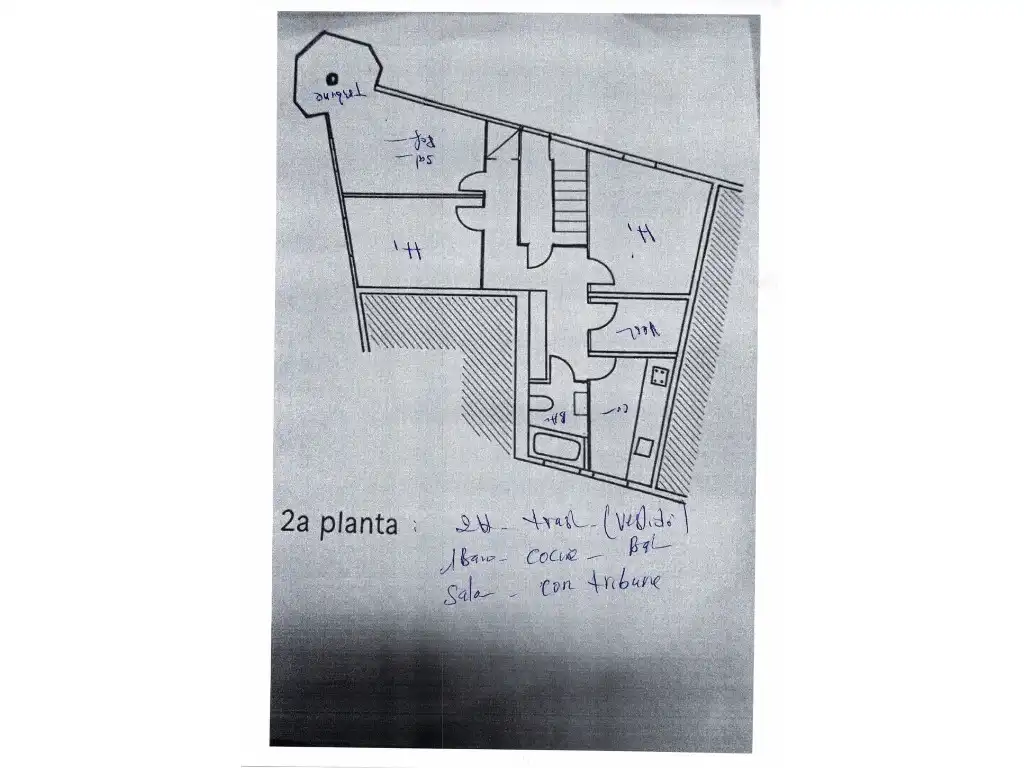 Tribune
sal
H,
H,
BA
Co
2a planta : 2H - trast - (Vestido)
1 Bano - cocine - Bal
Sala - con tribune